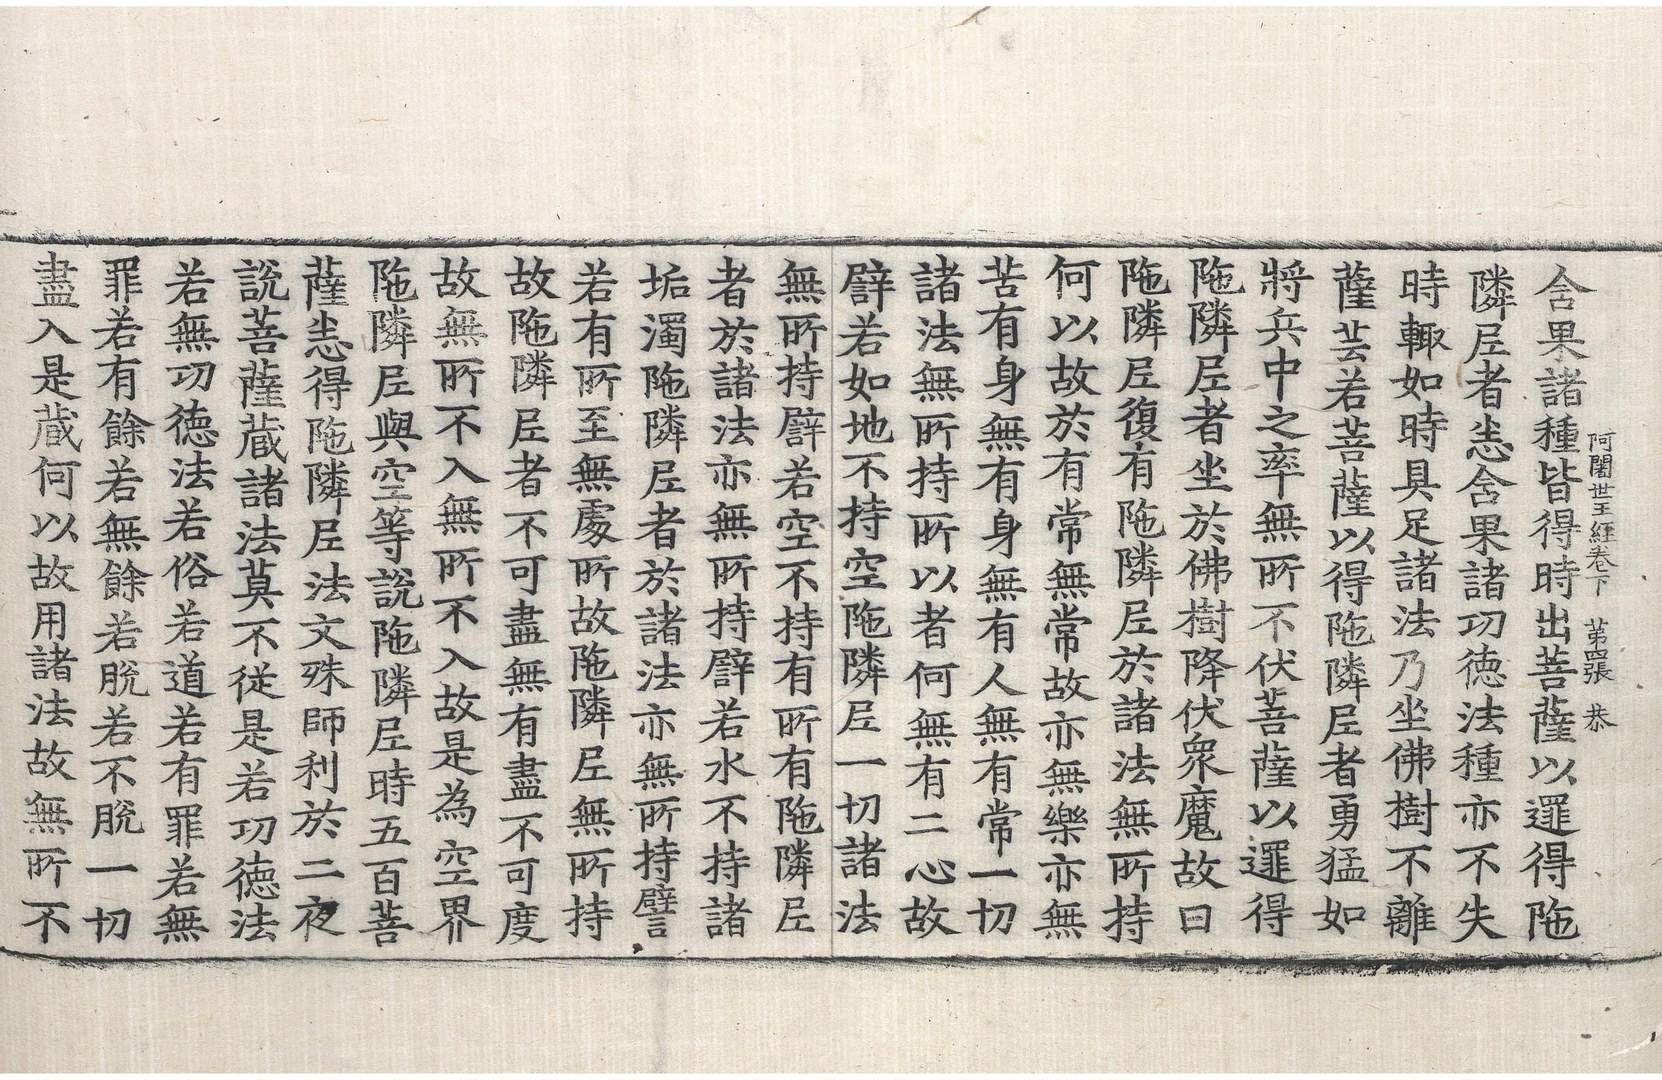 阿闍世王経卷下 第四張 恭
含果諸種皆得時出菩薩以逮得陁
隣尼者悉含果諸功德法種亦不失
時輙如時具足諸法乃坐佛樹不離
薩芸若菩薩以得陁隣尼者勇猛如
將兵中之率無所不伏菩薩以逮得
陁隣尼者坐於佛樹降伏衆魔故曰
陁隣尼復有陁隣尼於諸法無所持
何以故於有常無常故亦無樂亦無
苦有身無有身無有人無有常一切
諸法無所持所以者何無有二心故
譬若如地不持空陁隣尼一切諸法
無所持譬若空不持有所有陁隣尼
者於諸法亦無所持譬若水不持諸
垢濁陁隣尼者於諸法亦無所持譬
若有所至無處所故陁隣尼無所持
故陁隣尼者不可盡無有盡不可度
故無所不入無所不入故是為空界
陁隣尼與空等說陁隣尼時五百菩
薩悉得陁隣尼法文殊師利於二夜
說菩薩藏諸法莫不從是若功德法
若無功德法若俗若道若有罪若無
罪若有餘若無餘若脫若不脫一切
盡入是藏何以故用諸法故無所不